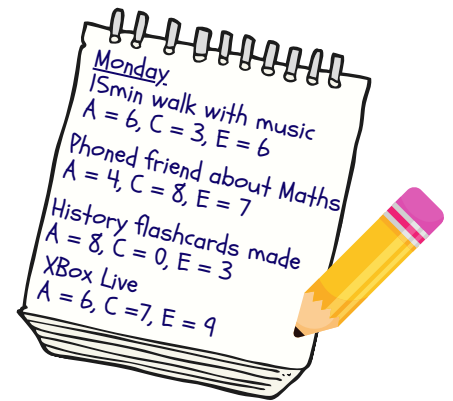 Monday
15min walk with music
A = 6, C = 3, E = 6
Phoned friend about Maths
A = 4, C = 8, E = 7
History flashcards made
A = 8, C = 0, E = 3
XBox Live
A = 6, C =7, E = 9